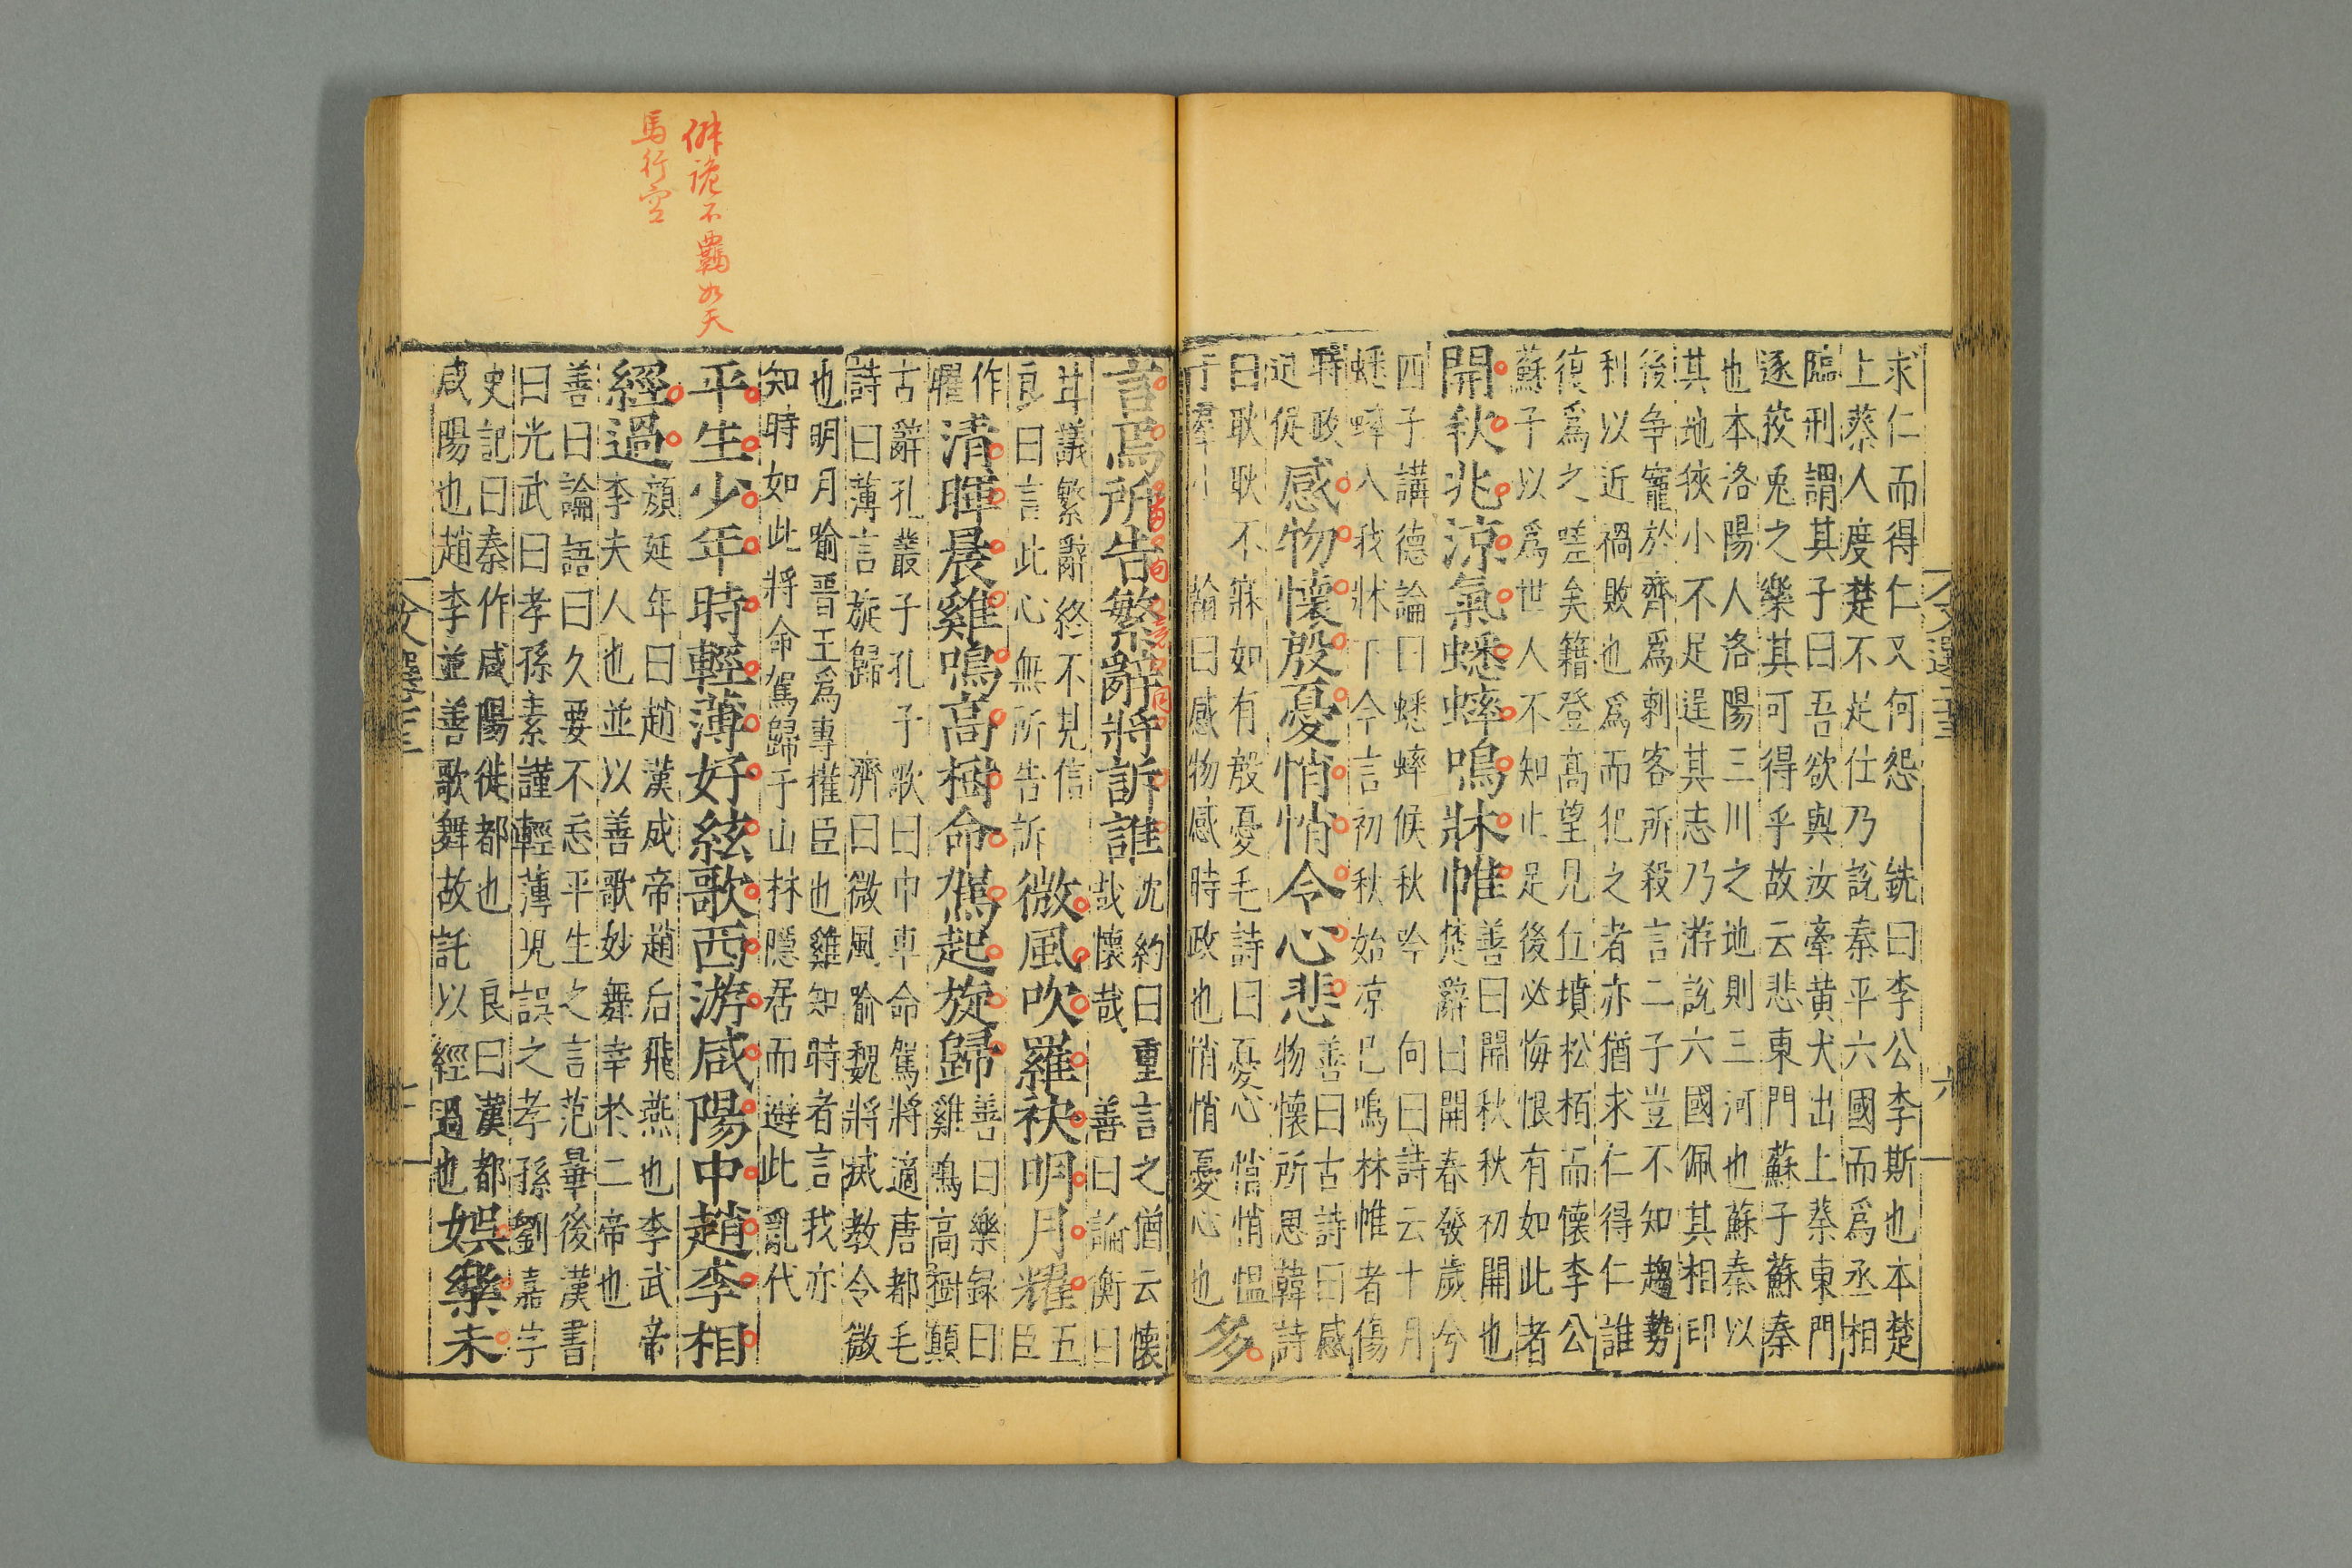 求仁而得仁又何怨 銑曰李公李斯也本楚
上蔡人度楚不足仕乃說秦平六國而爲丞相
臨刑謂其子曰吾欲與汝牽黃犬出上蔡東門
逐狡兎之樂其可得乎故云悲東門 蘇子蘇秦
也本洛陽人洛陽三川之地則三河也蘇秦以
其地狹小不足逞其志乃游說六國佩其相印
後争寵於齊爲刺客所殺言二子豈不知趨勢
利以近禍敗也爲而犯之者亦猶求仁得仁誰
復爲之嗟矣籍登髙望見丘墳松栢而懷李公
蘇子以爲世人不知止足後必悔恨有如此者
開秋兆涼氣蟋蟀鳴牀帷
善曰開秋秋初開也
楚辭曰開春發歲兮
四子講德論曰蟋蟀候秋吟 向曰詩云十月
蟋蟀入我牀下今言初秋始凉已鳴牀帷者傷
時政
迅促
感物懷殷憂悄悄令心悲
善曰古詩曰感
物懷所思韓詩
曰耿耿不寐如有殷憂毛詩曰憂心悄悄愠
于羣小 翰曰感物感時政也悄悄憂心也
多
言焉所告繁辭將訴誰
沈約曰重言之猶云懷
哉懷哉 善曰論衡曰
甘議繁辭終不見信
良曰言此心無所告訴
微風吹羅袂明月耀
五
臣
作
曜
清暉晨雞鳴高樹命駕起旋歸
善曰樂録曰
雞鳴高樹顛
古辭孔叢子孔子歌曰巾車命駕將適唐都毛
詩曰薄言旋歸 濟曰微風喻魏將滅教令微
也明月喻晋王爲專權臣也雞知時者言我亦
知時如此將命駕歸于山林隱居而避此亂代
平生少年時輕薄好絃歌西游咸陽中趙李相
經過
顔延年曰趙漢成帝趙后飛燕也李武帝
李夫人也並以善歌妙舞幸於二帝也
善曰論語曰久要不忘平生之言范曄後漢書
曰光武曰孝孫素謹輕薄兒誤之孝孫劉嘉字
史記曰秦作咸陽徙都也 良曰漢都
咸陽也趙李並善歌舞故託以經過也
娯樂未
不羈如天
馬行空